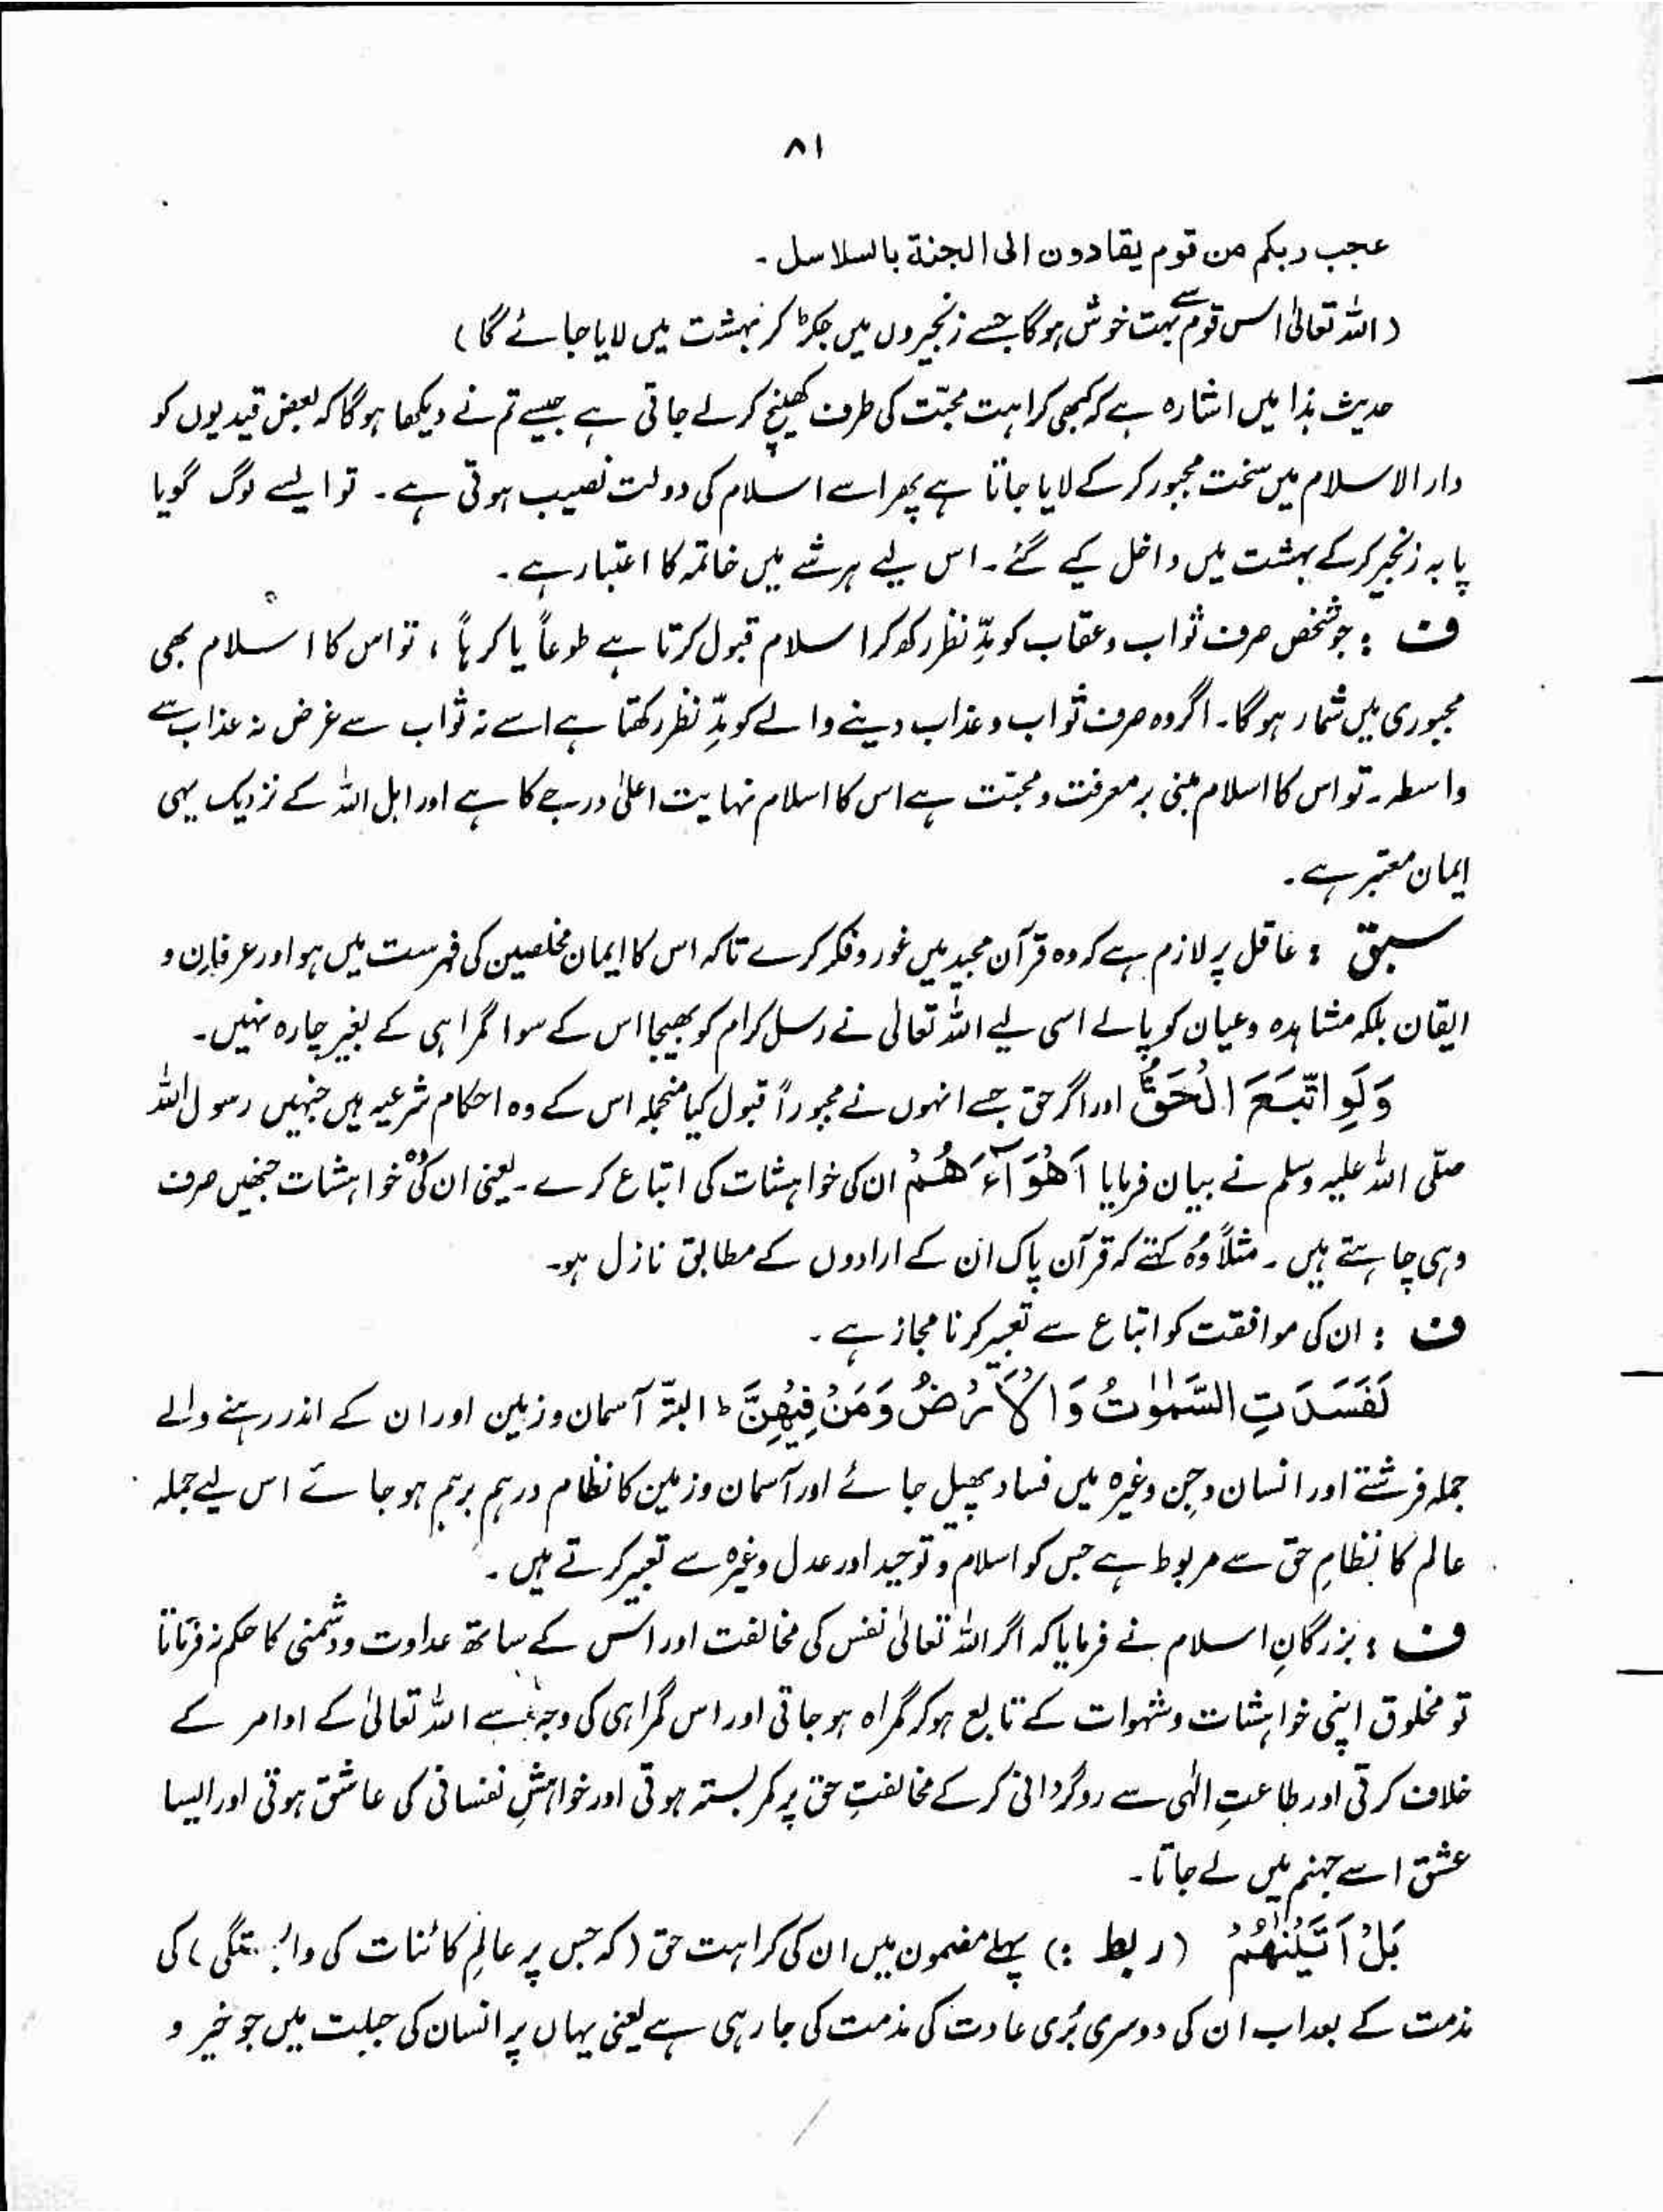 ۸۱
عجب ربکم من قوم یقادون الی الجنۃ بالسلاسل ۔
(اللہ تعالیٰ اس قوم سے بہت خوش ہوگا جسے زنجیروں میں جکڑ کر بہشت میں لایا جائے گا)
حدیث ہذا میں اشارہ ہے کہ کبھی کراہت محبّت کی طرف کھینچ کر لے جاتی ہے جیسے تم نے دیکھا ہوگا کہ بعض قیدیوں کو
دار الاسلام میں سخت مجبور کرکے لایا جاتا ہے پھر اسے اسلام کی دولت نصیب ہوتی ہے۔ تو ایسے لوگ گویا
پا بہ زنجیر کرکے بہشت میں داخل کیے گئے۔ اس لیے ہر شے میں خاتمہ کا اعتبار ہے۔
ف : جو شخص صرف ثواب و عقاب کو مدِّ نظر رکھ کر اسلام قبول کرتا ہے طوعاً یا کرہاً ، تو اس کا اسلام بھی
مجبوری میں شمار ہوگا۔ اگر وہ صرف ثواب و عذاب دینے والے کو مدِّ نظر رکھتا ہے اسے نہ ثواب سے غرض نہ عذاب سے
واسطہ۔ تو اس کا اسلام مبنی بر معرفت و محبّت ہے اس کا اسلام نہایت اعلیٰ درجے کا ہے اور اہل اللہ کے نزدیک یہی
ایمان معتبر ہے۔
سبق : عاقل پر لازم ہے کہ وہ قرآن مجید میں غور و فکر کرے تاکہ اس کا ایمان مخلصین کی فہرست میں ہو اور عرفان و
ایقان بلکہ مشاہدہ و عیان کو پالے اسی لیے اللہ تعالیٰ نے رسل کرام کو بھیجا اس کے سوا گمراہی کے بغیر چارہ نہیں۔
وَلَوِ اتَّبَعَ الْحَقُّ اور اگر حق جسے انہوں نے مجبوراً قبول کیا منجملہ اس کے وہ احکام شرعیہ ہیں جنہیں رسول اللہ
صلّی اللہ علیہ وسلم نے بیان فرمایا اَهْوَآءَهُمْ ان کی خواہشات کی اتباع کرے۔ یعنی ان کی وُہ خواہشات جنھیں صرف
وہی چاہتے ہیں ۔ مثلاً وُہ کہتے کہ قرآن پاک ان کے ارادوں کے مطابق نازل ہو۔
ف : ان کی موافقت کو اتباع سے تعبیر کرنا مجاز ہے ۔
لَفَسَدَتِ السَّمٰوٰتُ وَالْاَرْضُ وَمَنْ فِیْهِنَّ ط البتّہ آسمان و زمین اور ان کے اندر رہنے والے
جملہ فرشتے اور انسان و جِن وغیرہ میں فساد پھیل جائے اور آسمان و زمین کا نظام درہم برہم ہو جائے اس لیے جملہ
عالم کا نظامِ حق سے مربوط ہے جس کو اسلام و توحید اور عدل وغیرہ سے تعبیر کرتے ہیں ۔
ف : بزرگانِ اسلام نے فرمایا کہ اگر اللہ تعالیٰ نفس کی مخالفت اور اس کے ساتھ عداوت و دشمنی کا حکم نہ فرماتا
تو مخلوق اپنی خواہشات و شہوات کے تابع ہوکر گمراہ ہو جاتی اور اس گمراہی کی وجہ سے اللہ تعالیٰ کے اوامر کے
خلاف کرتی اور طاعتِ الٰہی سے روگردانی کرکے مخالفتِ حق پر کمر بستہ ہوتی اور خواہشِ نفسانی کی عاشق ہوتی اور ایسا
عشق اسے جہنم میں لے جاتا۔
بَلْ اَتَیْنٰهُمْ (ربط :) پہلے مضمون میں ان کی کراہت حق (کہ جس پر عالمِ کائنات کی وابستگی) کی
مذمت کے بعد اب ان کی دوسری بُری عادت کی مذمت کی جا رہی ہے یعنی یہاں پر انسان کی جبلت میں جو خیر و